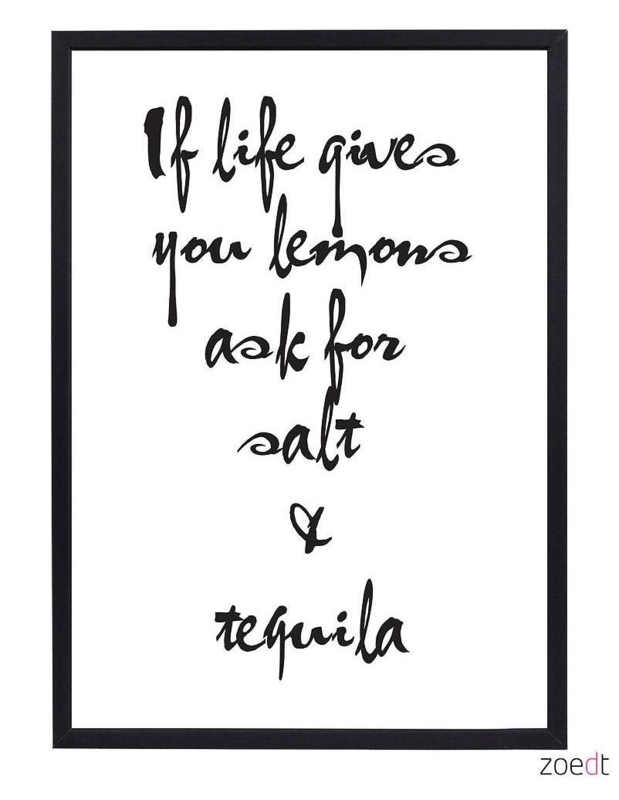 If life gives
you lemons
ask for
salt
&
tequila
zoedt